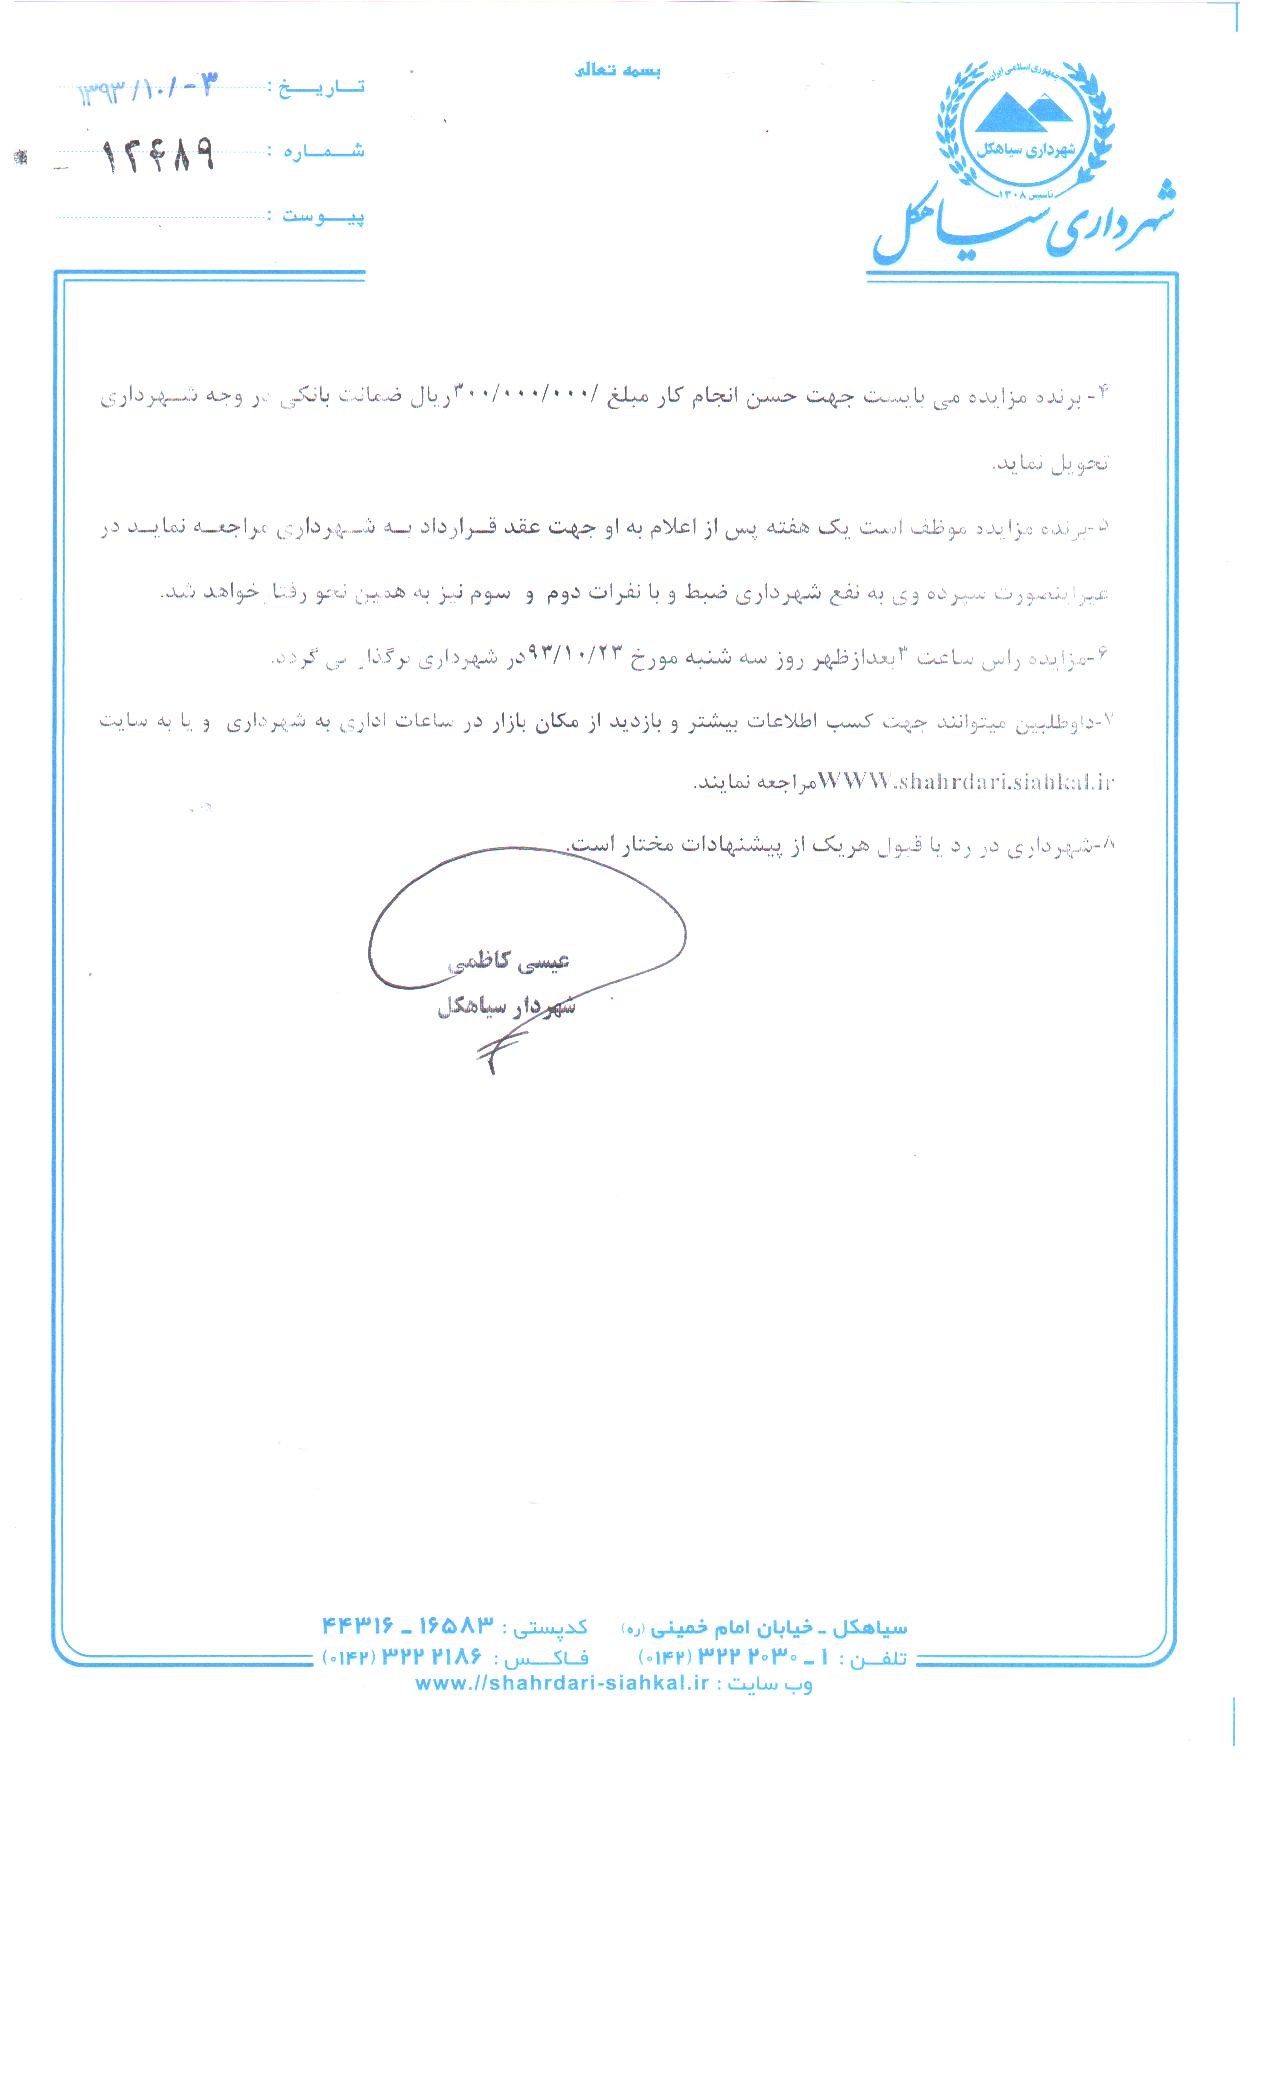 بسمه تعالی
جمهوری اسلامی ایران
شهرداری سیاهکل
تاسیس ۱۳۰۸
شهرداری سیاهکل
تــاریــــخ : ۱۳۹۳/۱۰/۰۳
شــمــاره : ۱۲۴۸۹
پیــوست :
۴- برنده مزایده می بایست جهت حسن انجام کار مبلغ /۳۰۰/۰۰۰/۰۰۰ریال ضمانت بانکی در وجه شهرداری
تحویل نماید.
۵-برنده مزایده موظف است یک هفته پس از اعلام به او جهت عقد قرارداد به شهرداری مراجعه نماید در
غیراینصورت سپرده وی به نفع شهرداری ضبط و با نفرات دوم و سوم نیز به همین نحو رفتار خواهد شد.
۶-مزایده راس ساعت ۳بعدازظهر روز سه شنبه مورخ ۹۳/۱۰/۲۳در شهرداری برگذار می گردد.
۷-داوطلبین میتوانند جهت کسب اطلاعات بیشتر و بازدید از مکان بازار در ساعات اداری به شهرداری و یا به سایت
WWW.shahrdari.siahkal.irمراجعه نمایند.
۸-شهرداری در رد یا قبول هریک از پیشنهادات مختار است.
عیسی کاظمی
شهردار سیاهکل
سیاهکل ـ خیابان امام خمینی (ره) کدپستی : ۱۶۵۸۳ ـ ۴۴۳۱۶
تلفــن : ۱ ـ ۲۰۳۰ ۳۲۲ (۰۱۴۲) فـاکــس : ۲۱۸۶ ۳۲۲ (۰۱۴۲)
وب سایت : www.//shahrdari-siahkal.ir